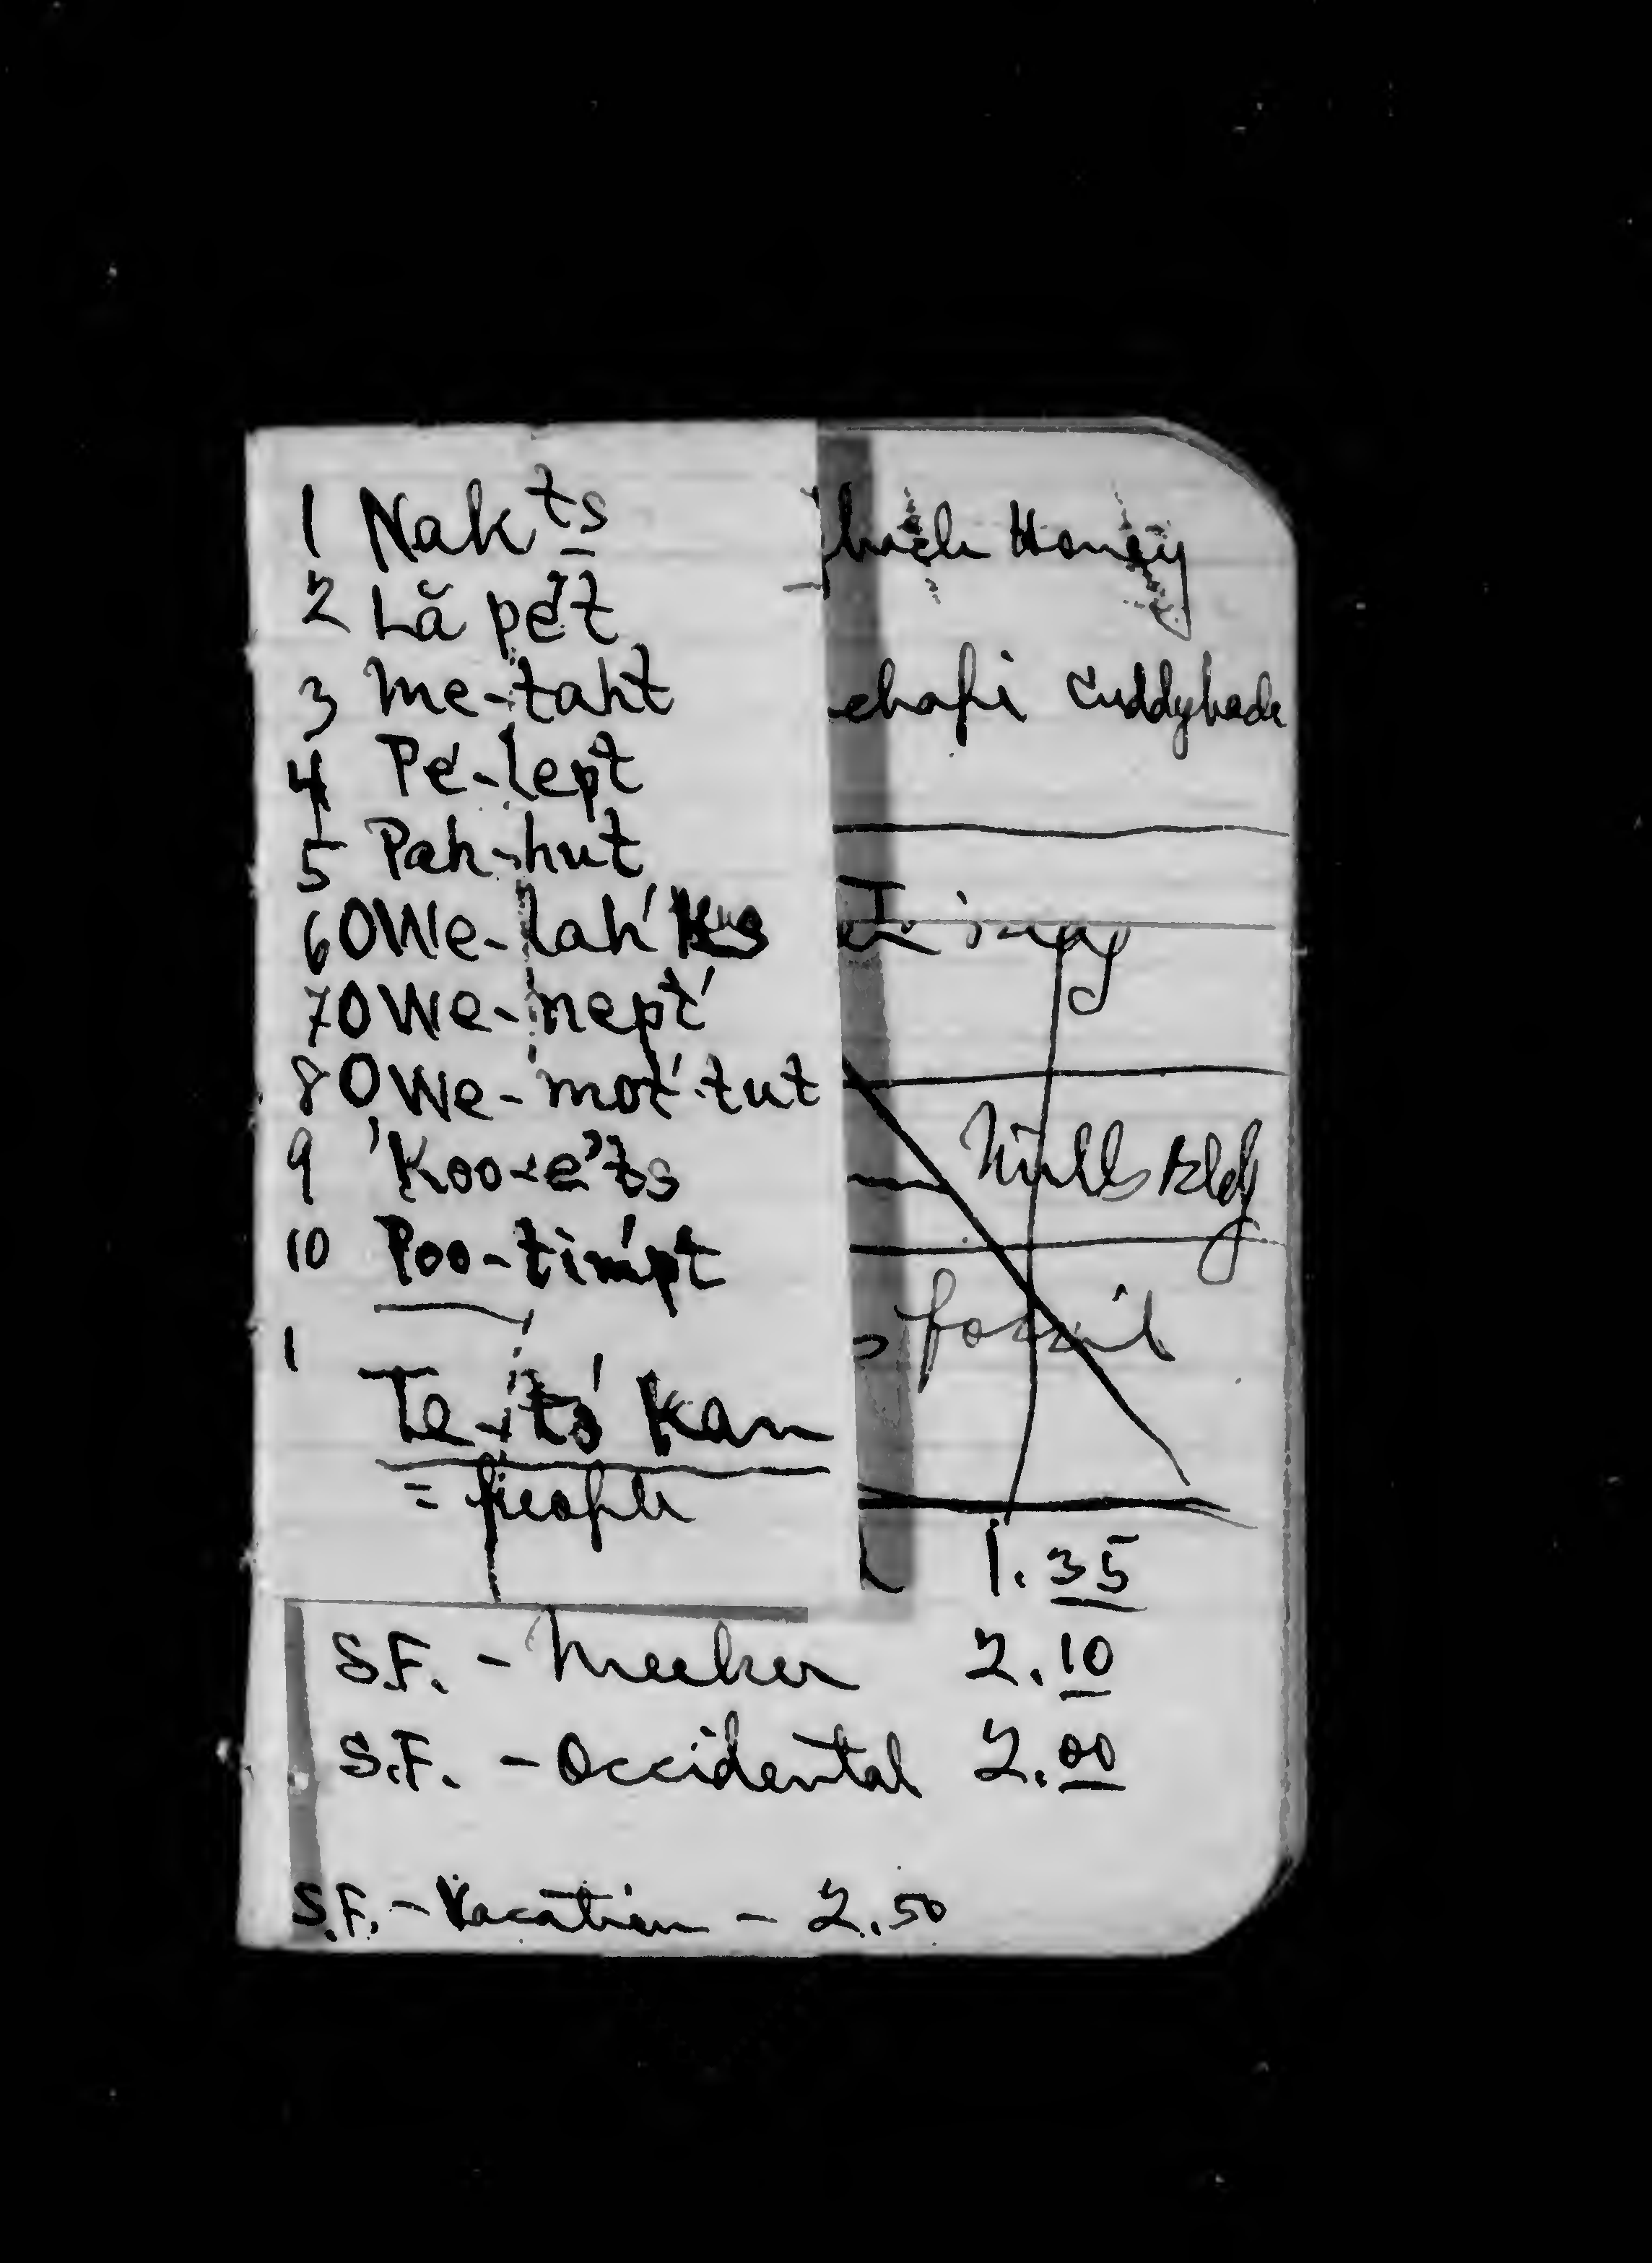 1 Nak ts
2 Lă pĕt
3 me-taht
4 Pé-lept
5 Pah-hut
6 OWe-lah'Ks
7 OWe-nept'
8 OWe-mot'tut
9 'Koo-e'ts
10 Poo-timpt
1
Te-to' Kan
= people
Honey
Cuddyback
Bldg
fossil
1.35
S.F. - Meeker 2.10
S.F. - Occidental 2.00
S.F. - Vacation - 2.50